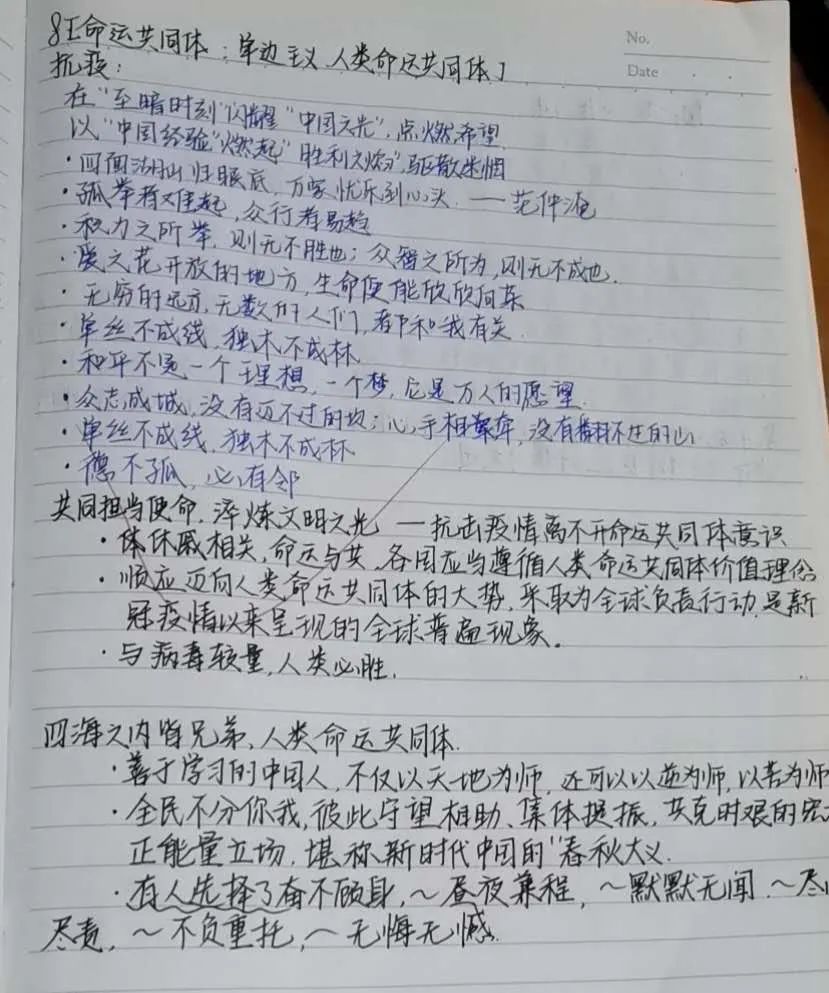 8[命运共同体：单边主义 人类命运共同体]
No.
抗疫：
Date
在"至暗时刻"闪耀"中国之光",点燃希望
以"中国经验"燃起"胜利之燎",驱散迷惘
·四面湖山归眼底,万家忧乐到心头.——范仲淹
·孤举者难起,众行者易趋
·积力之所举,则无不胜也；众智之所为,则无不成也.
·爱之花开放的地方,生命便能欣欣向荣
·无穷的远方,无数的人们,都和我有关.
·单丝不成线,独木不成林
·和平不是一个理想,一个梦,它是万人的愿望.
·众志成城,没有迈不过的坎；心手相牵,没有翻不过的山
·单丝不成线,独木不成林
·德不孤,必有邻
共同担当使命,淬炼文明之光——抗击疫情离不开命运共同体意识
·体休戚相关,命运与共,各国应当遵循人类命运共同体价值理念
·顺应迈向人类命运共同体的大势,采取为全球负责行动,是新
冠疫情以来呈现的全球普遍现象。
·与病毒较量,人类必胜.
四海之内皆兄弟,人类命运共同体.
·善于学习的中国人,不仅以天地为师,还可以以逆为师,以苦为师
·全民不分你我,彼此守望相助、集体提振,共克时艰的宏
正能量立场,堪称新时代中国的"春秋大义.
·有人选择了奋不顾身,～昼夜兼程,～默默无闻.～尽心
尽责,～不负重托,～无悔无憾.